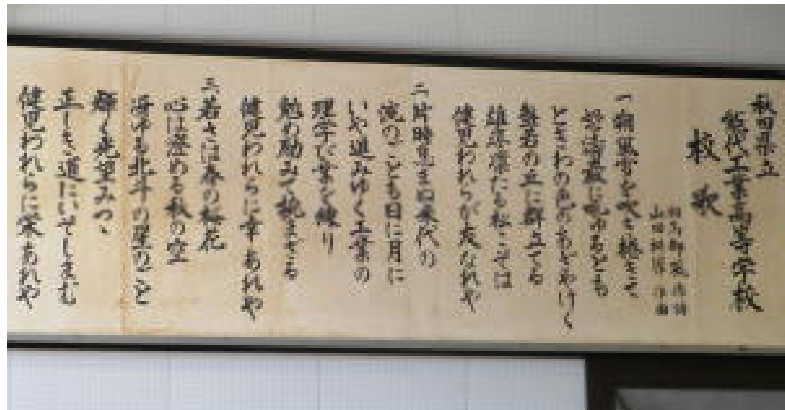 秋田県立
能代工業高等学校
校歌
相馬御風 作詩
山田耕筰 作曲
一 朔風雪を吹き捲きて
怒濤巌に吼ゆるとも
ときわの色のあざやけく
盤若の丘に群立てる
雄姿凛たる松こそは
健児われらが友なれや
二 片時息まぬ米代の
流のごとも日に月に
いや進みゆく工業の
理学び業を練り
勉め励みて撓まざる
健児われらに幸あれや
三 若さは春の桜花
心は澄める秋の空
冴ゆる北斗の星のごと
輝く希望みつゝ
正しき道にいそしまむ
健児われらに栄あれや